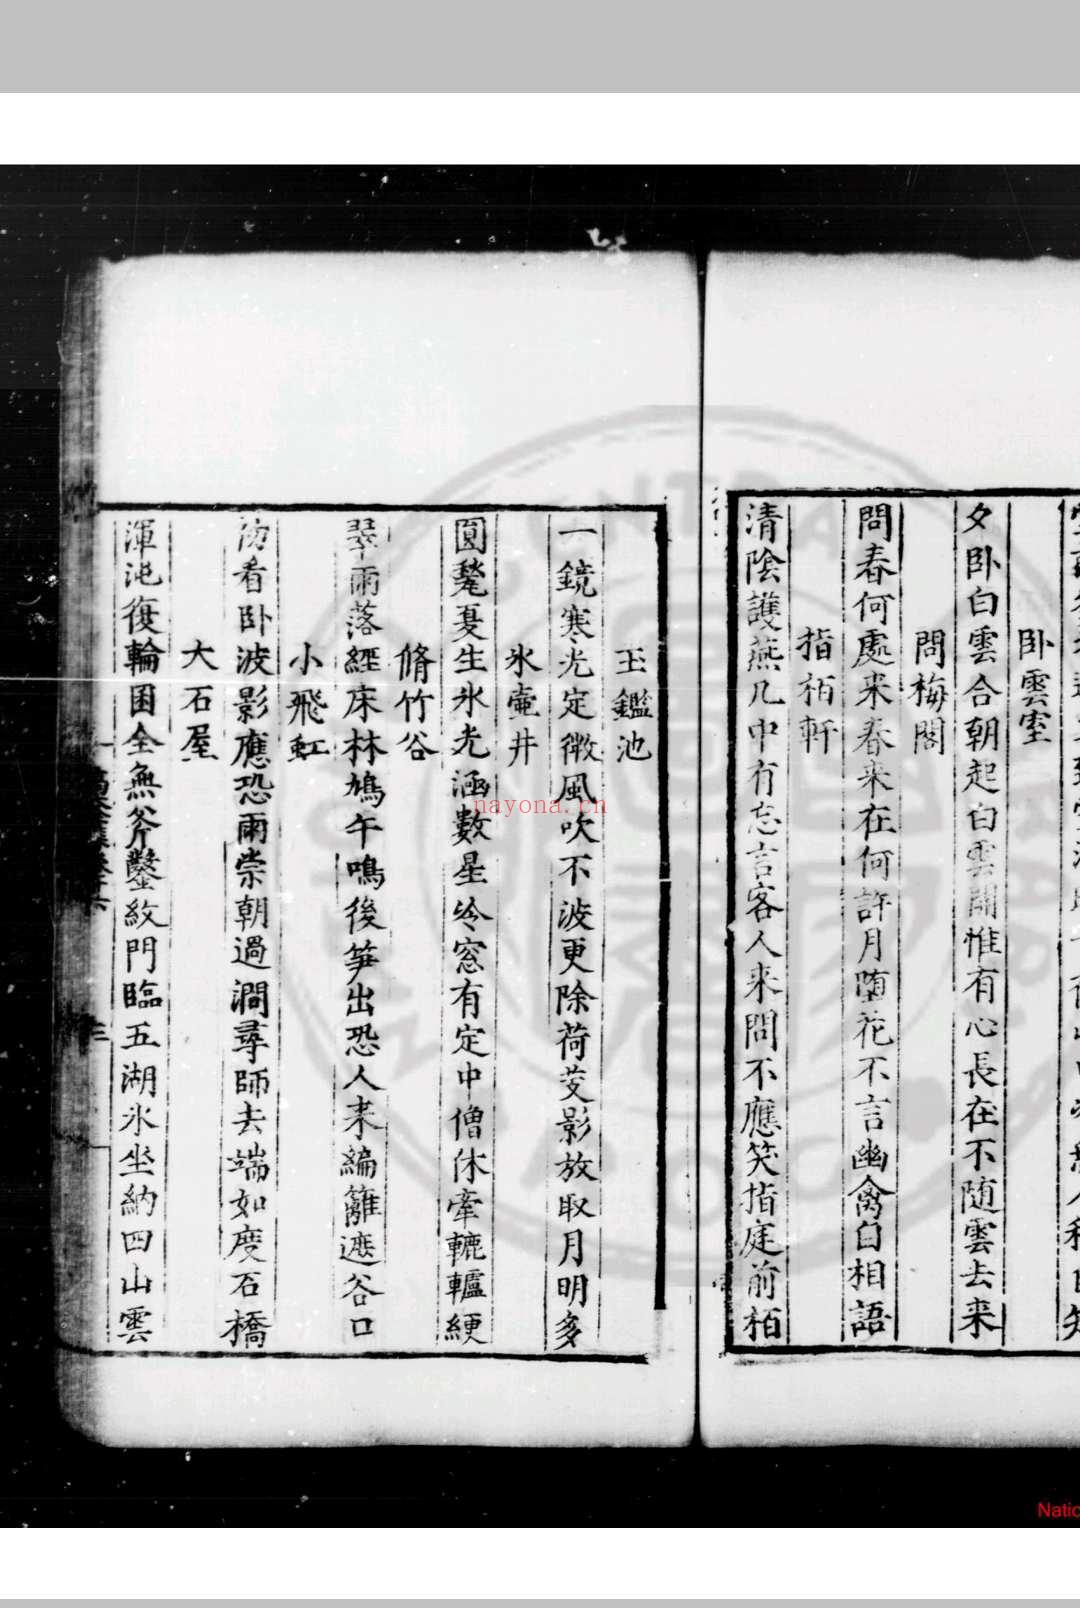 卧雲室
夕卧白雲合朝起白雲開惟有心長在不随雲去来
問梅閣
問春何處来春来在何許月堕花不言幽禽自相語
指栢軒
清陰護燕几中有忘言客人来問不應笑指庭前栢
玉鑑池
一鏡寒光定微風吹不波更除荷芰影放取月明多
氷壷井
圓甃夏生氷光涵數星冷窓有定中僧休牽轆轤綆
脩竹谷
翠雨落經床林鳩午鳴後笋出恐人来編籬遮谷口
小飛虹
初看卧波影應恐雨崇朝過澗尋師去端如度石橋
大石屋
渾沌復輪囷全無斧鑿紋門臨五湖氷坐納四山雲
三
nayona.cn
Natio